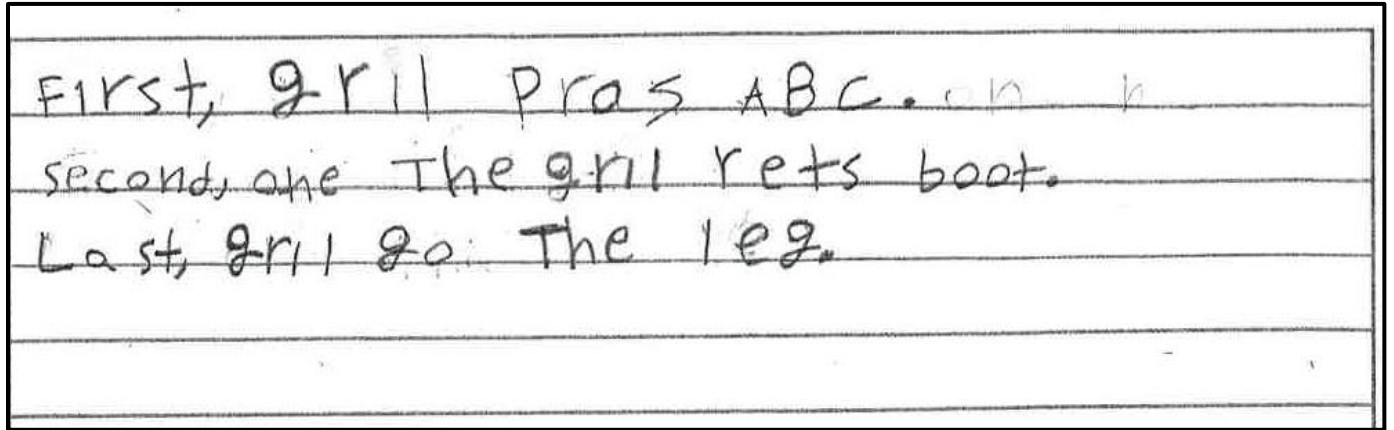 First, gril Pras ABC. on h
second, ane The gril rets boot.
Last, gril go The leg.